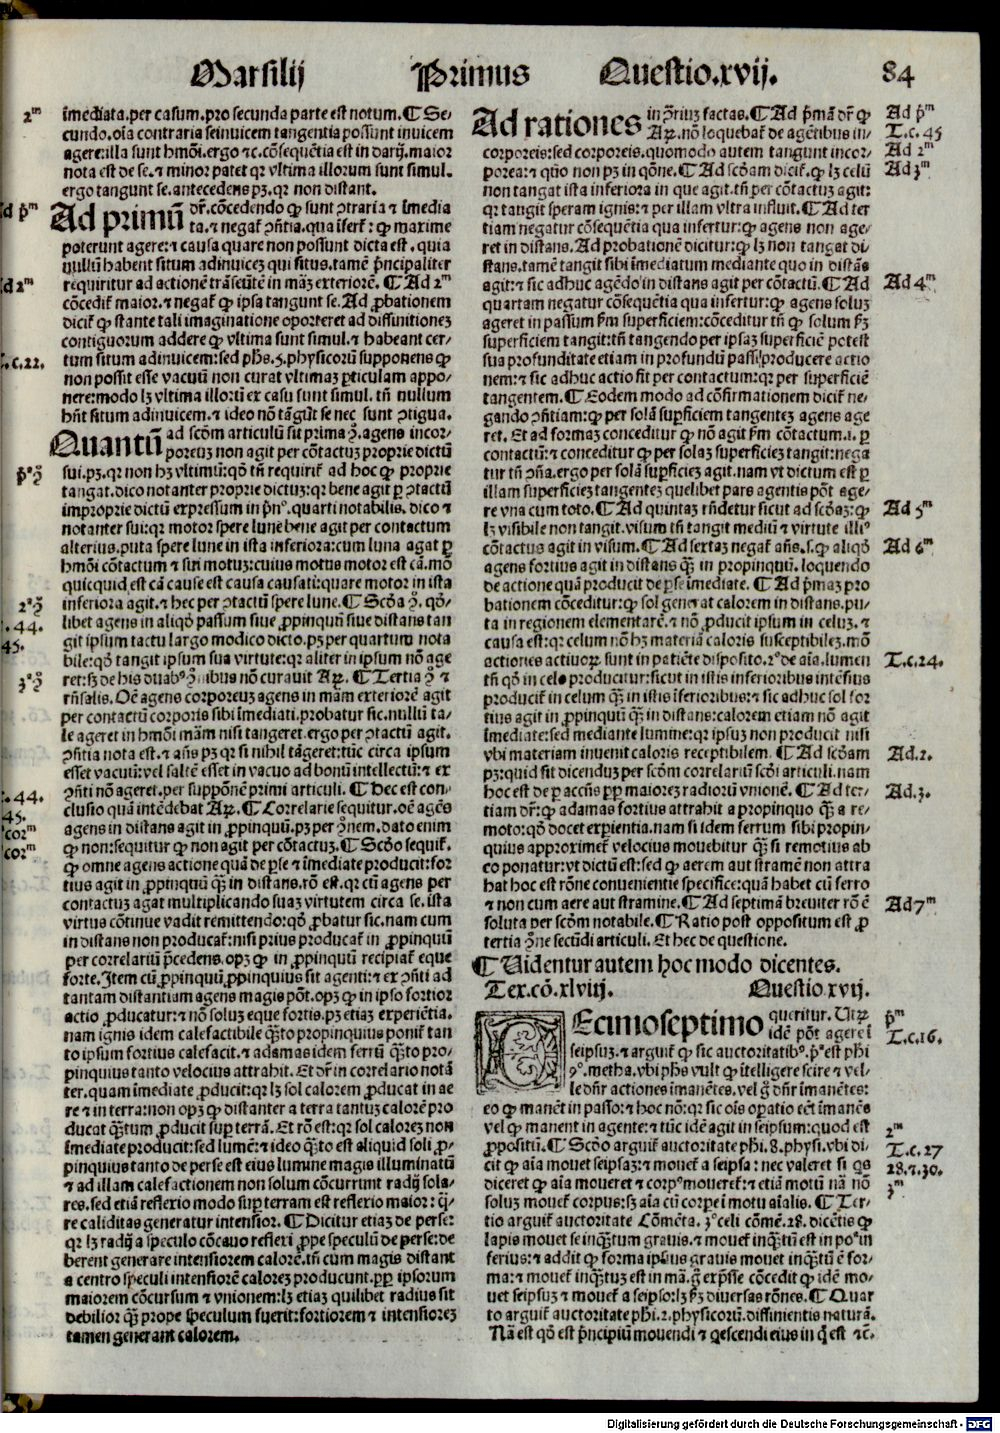 Marsilij Primus Questio.xvij. 84
2ᵐ īmediata.per casum.pro secunda parte est notum.¶ Se⸗
cundo.oīa contraria seinuicem tangentia possunt inuicem
agere:illa sunt hmōi.ergo ⁊c.cōsequētia est in darij.maior
nota est de se.⁊ minor patet qr vltima illorum sunt simul.
ergo tangunt se.antecedens pꝫ.qr non distant.
Ad pᵐ Ad primū dr̄.cōcedendo ꝙ sunt ꝯtraria ⁊ īmedia
ta.⁊ negat̄ ꝯn̄tia.qua īfert̄: ꝙ maxime
poterunt agere:⁊ causa quare non possunt dicta est.quia
nullū habent situm adinuicez qui situs.tamē p̄ncipaliter
requiritur ad actionē trāseūtē in māz exteriorē.¶ Ad 2ᵐ
Ad 2ᵐ cōcedit̄ maior.⁊ negat̄ ꝙ ipsa tangunt se.Ad ꝓbationem
dicit̄ ꝙ stante tali imaginatione oporteret ad diffinitionez
contiguorum addere ꝙ vltima sunt simul.⁊ habeant cer⸗
T.c.22. tum situm adinuicem:sed phs.5.physicorū supponens ꝙ
non possit esse vacuū non curat vltimaz ꝑticulam appo⸗
nere:modo lꝫ vltima illorū ex casu sunt simul.tn̄ nullum
hn̄t situm adinuicem.⁊ ideo nō tāgūt se nec sunt ꝯtigua.
Quantū ad scd̄m articulū sit prima ꝯ̄.agens incor⸗
poreuz non agit per cōtactuz proprie dictū
pᵃꝯ̄ sui.pꝫ.qr non hꝫ vltimū:qd̄ tn̄ requirit̄ ad hoc ꝙ proprie
tangat.dico notanter proprie dictuz:qr bene agit ꝑ ꝯtactū
improprie dictū expressum in p̄nº.quarti notabilis.dico ⁊
notanter sui:qr motor spere lune bene agit per contactum
alterius.puta spere lune in ista inferiora:cum luna agat ꝑ
hmōi cōtactum ⁊ sui motuz:cuius motus motor est cā.mō
quicquid est cā cause est causa causati:quare motor in ista
2ᵃꝯ̄ inferiora agit.⁊ hec per ꝯtactū spere lune.¶ Scd̄a ꝯ̄.qd̄⸗
.44. libet agens in aliqd̄ passum siue ꝓpinquū siue distans tan
45. git ipsum tactu largo modico dicto.pꝫ per quartum nota
bile:qd̄ tangit ipsum sua virtute:qr aliter in ipsum nō age
3ᵃꝯ̄ ret:sꝫ de his duabꝰ ꝯ̄nibus nō curauit Ar.¶ Tertia ꝯ̄ ⁊
rn̄salis.Oē agens corporeuz agens in mām exteriorē agit
per contactū corporis sibi īmediati.probatur sic.nullū ta⸗
le ageret in hmōi mām nisi tangeret.ergo per ꝯtactū agit.
ꝯn̄tia nota est.⁊ an̄s pꝫ qr si nihil tāgeret:tūc circa ipsum
esset vacuū:vel saltē esset in vacuo ad bonū intellectū:⁊ ex
.44. ꝯn̄ti nō ageret.per suppōnē primi articuli.¶ Hec est con⸗
45. clusio quā intēdebat Ar.¶ Correlarie sequitur.oē agēs
corᵐ agens in distans agit in ꝓpinquū.pꝫ per ꝯ̄nem.dato enim
corᵐ ꝙ non:sequitur ꝙ non agit per cōtactuz.¶ Scd̄o sequit̄.
ꝙ omne agens actione quā de ꝑse ⁊ īmediate producit:for
tius agit in ꝓpinquū ꝙ̄ in distans.rō est.qr cū agens per
contactuz agat multiplicando suaz virtutem circa se.ista
virtus cōtinue vadit remittendo:qd̄ ꝓbatur sic.nam cum
in distans non producat̄:nisi prius producat̄ in ꝓpinquū
per correlariū p̄cedens.opꝫ ꝙ in ꝓpinquū recipiat̄ eque
forte.Item cū ꝓpinquū ꝓpinquius sit agenti:⁊ ex ꝯn̄ti ad
tantam distantiam agens magis pōt.opꝫ ꝙ in ipso fortior
actio ꝓducatur:⁊ nō soluz eque fortis.pꝫ etiaz experiētia.
nam ignis idem calefactibile ꝙ̄to propinquius ponit̄ tan
to ipsum fortius calefacit.⁊ adamas idem ferrū ꝙ̄to pro⸗
pinquius tanto velocius attrahit.Et dr̄ in correlario notā
ter.quam īmediate ꝓducit:qr lꝫ sol calorem ꝓducat in ae
re ⁊ in terra:non opꝫ ꝙ distanter a terra tantuz calorē pro
ducat ꝙ̄tum ꝓducit suꝑ terrā.Et rō est:qr sol calorez non
īmediate producit:sed lumē:⁊ ideo ꝙ̄to est aliquid soli ꝓ⸗
pinquius tanto de perse est eius lumine magis illuminatū
⁊ ad illam calefactionem non solum cōcurrunt radij sola⸗
res.sed etiā reflexio modo suꝑ terram est reflexio maior:q̄⸗
re caliditas generatur intensior.¶ Dicitur etiaz de perse:
qr lꝫ radij a speculo cōcauo reflexi ꝓpe speculū de perse:de
berent generare intensiorem calorē.tn̄ cum magis distant
a centro speculi intensiorē calorez producunt.ꝓꝑ ipsorum
maiorem cōcursum ⁊ vnionem:lꝫ etiaz quilibet radius sit
debilior ꝙ̄ prope speculum fuerit:fortiorem ⁊ intensiorez
tamen generant calorem.
Ad rationes in p̄rius factas.¶ Ad p̄mā dr̄ ꝙ Ad p̄ᵐ
Ar.nō loquebat̄ de agētibus in⸗ T.c.45
corporeis:sed corporeis.quomodo autem tangunt incor⸗ Ad 2ᵐ
porea:⁊ qn̄o non pꝫ in qōne.¶ Ad scd̄am dicit̄.ꝙ lꝫ celū Ad 3ᵐ
non tangat ista inferiora in que agit.tn̄ per cōtactuz agit:
qr tangit speram ignis:⁊ per illam vltra influit.¶ Ad ter
tiam negatur cōsequētia qua infertur:ꝙ agens non age⸗
ret in distans.Ad probationē dicitur:ꝙ lꝫ non tangat di⸗
stans.tamē tangit sibi īmediatum mediante quo in distās
agit:⁊ sic adhuc agēdo in distans agit per cōtactū.¶ Ad Ad 4ᵐ
quartam negatur cōsequētia qua infertur:ꝙ agens soluz
ageret in passum s̄m superficiem:cōceditur tn̄ ꝙ solum s̄z
superficiem tangit:tn̄ tangendo per ipsaz superficiē potest
sua profunditate etiam in profundū passi producere actio
nem:⁊ sic adhuc actio fit per contactum:qr per superficiē
tangentem.¶ Eodem modo ad cōfirmationem dicit̄ ne⸗
gando ꝯn̄tiam:ꝙ per solā suꝑficiem tangentez agens age
ret.Et ad formaz conceditur ꝙ nō agit s̄m cōtactum.i.ꝑ
contactū:⁊ conceditur ꝙ per solaz superficiez tangit:nega
tur tn̄ ꝯn̄a.ergo per solā suꝑficiez agit.nam vt dictum est ꝑ
illam superficiez tangentez quelibet pars agentis pōt age⸗
re vna cum toto.¶ Ad quintaz rn̄detur sicut ad scd̄az:ꝙ Ad 5ᵐ
lꝫ visibile non tangit.visum tn̄ tangit mediū ⁊ virtute illiꝰ
cōtactus agit in visum.¶ Ad sextaz negat̄ an̄s.s.ꝙ aliqd̄ Ad 6ᵐ
agens fortius agit in distans ꝙ̄ in propinquū.loquendo
de actione quā producit de ꝑse īmediate.¶ Ad p̄maz pro
bationem cōceditur:ꝙ sol generat calorem in distans.pu⸗
ta in regionem elementarē.⁊ nō ꝓducit ipsum in celuz.⁊
causa est:qr celum nō hꝫ materiā caloris susceptibilez.mō
actiones actiuoꝝ sunt in patiēte disposito.2º de aīa.lumen T.c.24.
tn̄ qd̄ in celo producitur:sicut in istis inferioribus intēsius
producit̄ in celum ꝙ̄ in istis īferioribus:⁊ sic adhuc sol for
tius agit in ꝓpinquū ꝙ̄ in distans:calorem etiam nō agit
īmediate:sed mediante lumine:qr ipsuz non producit nisi
vbi materiam inuenit caloris receptibilem.¶ Ad scd̄am Ad.2.
pꝫ:quid sit dicenduz per scd̄m correlariū scd̄i articuli.nam
hoc est de ꝑ accn̄s ꝓꝑ maiorez radiorū vnionē.¶ Ad ter⸗ Ad.3.
tiam dr̄:ꝙ adamas fortius attrahit a propinquo ꝙ̄ a re⸗
moto:qd̄ docet experientia.nam si idem ferrum sibi propin⸗
quius approximet̄ velocius mouebitur ꝙ̄ si remotius ab
eo ponatur:vt dictū est:sed ꝙ aerem aut stramē non attra
hat hoc est rōne conuenientie specifice:quā habet cū ferro
⁊ non cum aere aut stramine.¶ Ad septimā breuiter rō ē Ad 7ᵐ
soluta per scd̄m notabile.¶ Ratio post oppositum est ꝓ
tertia ꝯ̄ne secūdi articuli.Et hec de questione.
¶ Uidentur autem hoc modo dicentes.
Tex.cō.xlviij. Questio xvij.
DEcimoseptimo queritur.Utꝝ p̄ᵐ
idē pōt agere ī T.c.16.
seipsuz.⁊ arguit̄ ꝙ sic auctoritatibꝰ.pº est phi
9º.metha.vbi phs vult ꝙ ītelligere scire ⁊ vel⸗
le dn̄r actiones īmanētes.vel ꝗ̄ dn̄r īmanētes:
eo ꝙ manēt in passo:⁊ hoc nō:qr sic oīs oꝑatio eēt īmanēs
vel ꝙ manent in agente:⁊ tūc idē agit in seipsum:quod est 2ᵐ
ꝓpositū.¶ Scd̄o arguit̄ auctoritate phi.8.physi.vbi di⸗ T.c.27
cit ꝙ aīa mouet seipsaz:⁊ mouet̄ a seipsa:nec valeret si qs 28.⁊.30.
diceret ꝙ aīa moueret ⁊ corpꝰ moueret̄:⁊ etiā motū nā nō 3ᵐ
soluz mouet̄ corpus:sꝫ aīa cū corpe ī motu aīalis.¶ Ter⸗
tio arguit̄ auctoritate Cōmēta.3º celi cōmē.28.dicētis ꝙ
lapis mouet se inꝙ̄tum grauis.⁊ mouet̄ inꝙ̄tū est in poª in
ferius:⁊ addit ꝙ forma ipsius grauis mouet inꝙ̄tū ē for⸗
ma:⁊ mouet̄ inꝙ̄tuz est in mā.ꝗ̄ exp̄sse cōcedit ꝙ idē mo⸗
uet seipsuz ⁊ mouet̄ a seipso:lꝫ s̄z diuersas rōnes.¶ Quar
to arguit̄ auctoritate phi.2.physicorū.diffinientis naturā.
Nā est qd̄ est p̄ncipiū mouendi ⁊ quiescendi eius in q̄ est ⁊c̄.
Digitalisierung gefördert durch die Deutsche Forschungsgemeinschaft - DFG